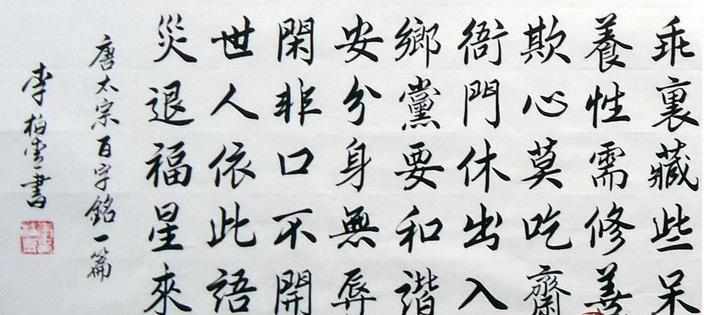 乖裏藏些呆
養性需修善
欺心莫吃齋
衙門休出入
鄉黨要和諧
安分身無辱
閑非口不開
世人依此語
災退福星來
唐太宗百字銘一篇
李柏雲書